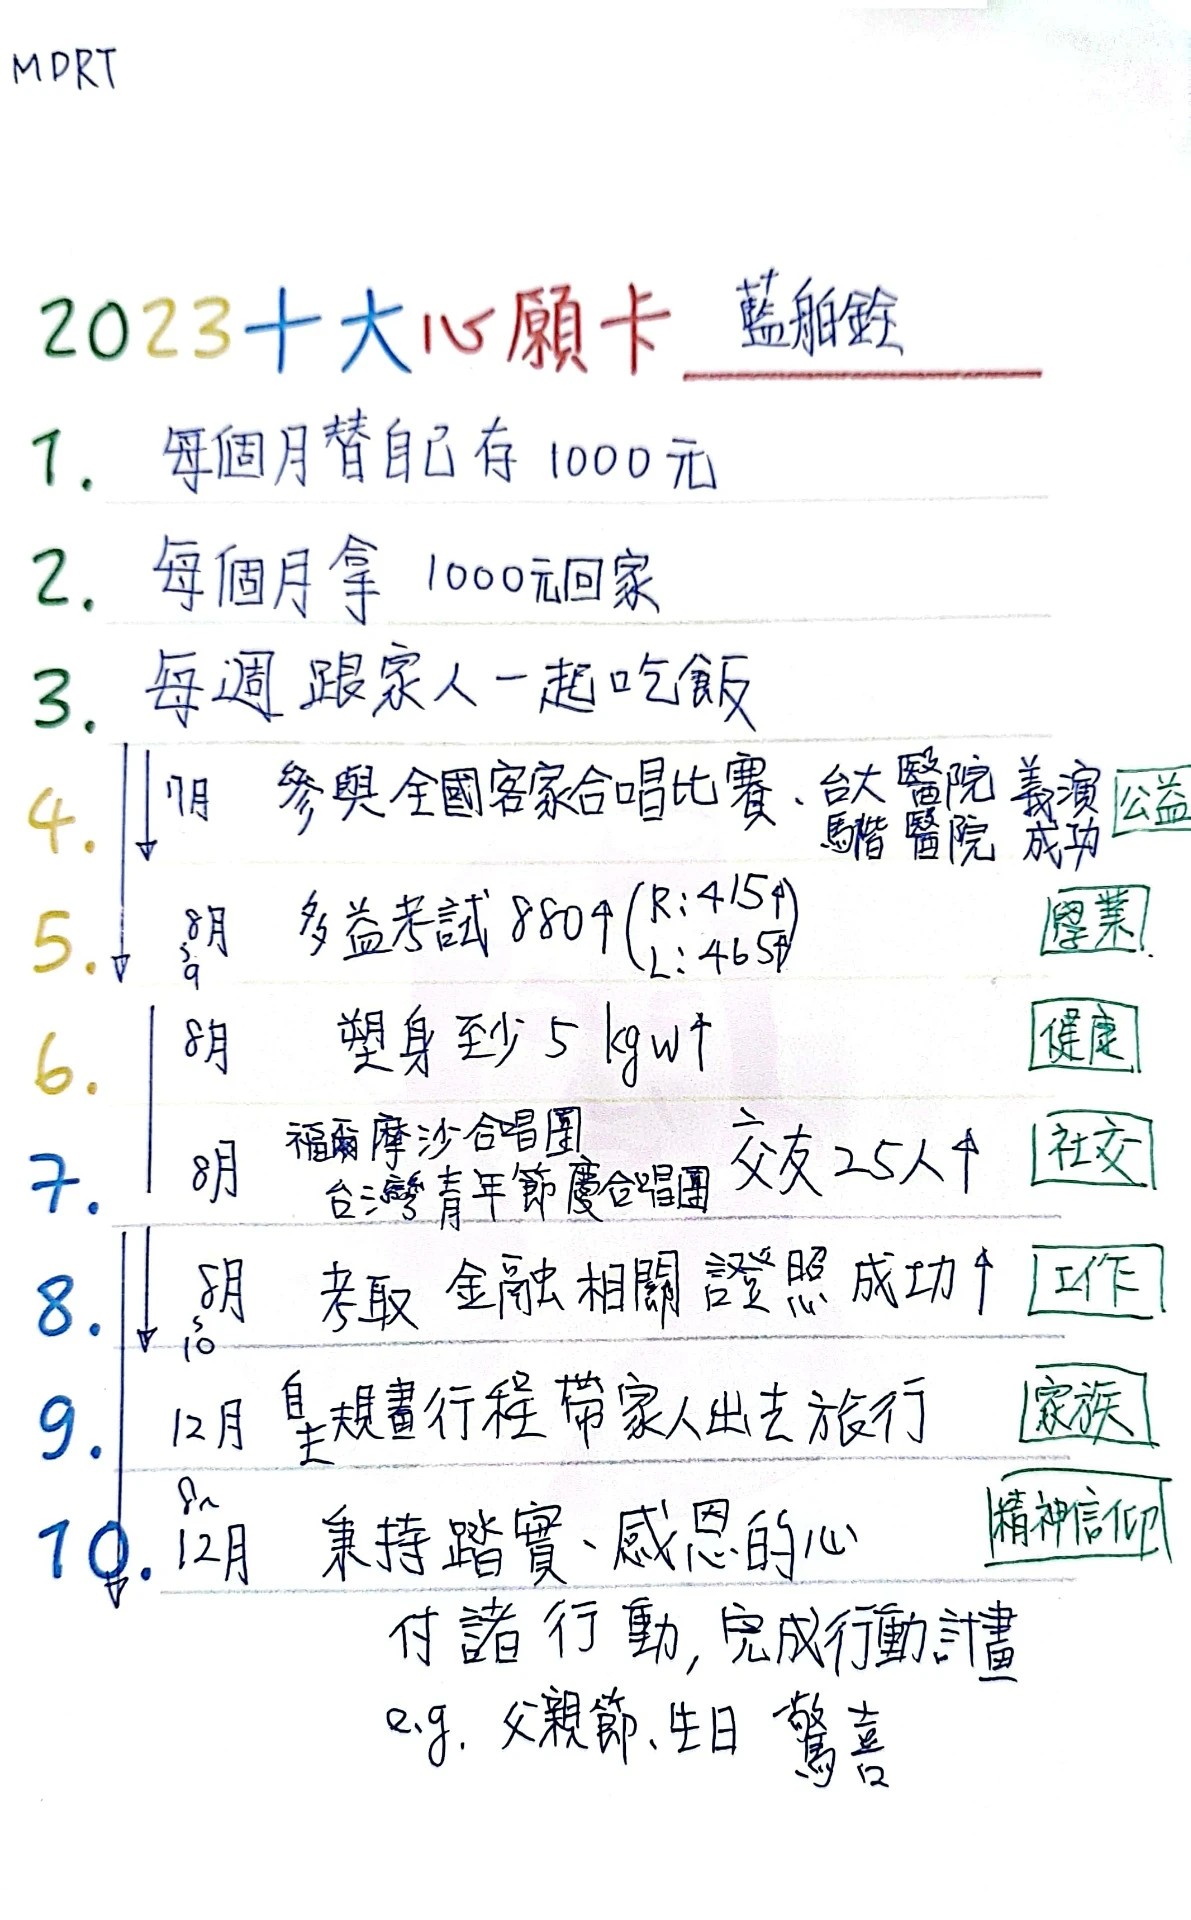 MDRT
2023十大心願卡 藍舶銓
1. 每個月替自己存 1000元
2. 每個月拿 1000元回家
3. 每週跟家人一起吃飯
4. 7月 參與全國客家合唱比賽、台大醫院 義演 公益
馬偕醫院 成功
5. 8月 多益考試 880↑ (R:415↑ 學業
9 L:465↑)
6. 8月 塑身至少 5 kgw↑ 健康
福爾摩沙合唱團
7. 8月 台灣青年節慶合唱團 交友25人↑ 社交
8. 8月 考取 金融相關 證照 成功↑ 工作
10
9. 12月 自主規畫行程 帶家人出去旅行 家族
8~
10. 12月 秉持踏實、感恩的心 精神信仰
付諸行動, 完成行動計畫
e.g. 父親節、生日 驚喜